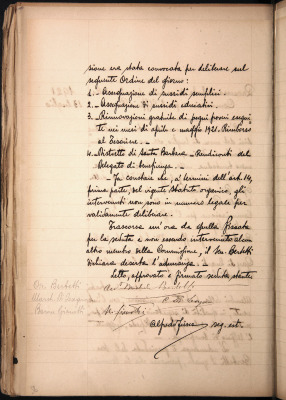 sione era stata convocata per deliberare sul
seguente Ordine del giorno:
1.- Assegnazione di sussidi semplici.
2.- Assegnazione di sussidi educativi.
3.- Rinnovazioni gratuite di pegni poveri esegui
te nei mesi di aprile e maggio 1921. Rimborso
al Tesoriere.-
4.- Distretto di Santa Barbara - Rendiconti del
Delegato di beneficenza.-
- Fa constare che, a termini dell'art. 14,
prima parte, del vigente statuto organico, gli
intervenuti non sono in numero legale per
validamente deliberare.
Trascorsa un'ora da quella fissata
per la seduta e non essendo intervenuto alcun
altro membro della Commissione, il Sac. Berletti
dichiara deserta l'adunanza.
Letto, approvato e firmato seduta stante
Berletti
Alfredo
seg. est.